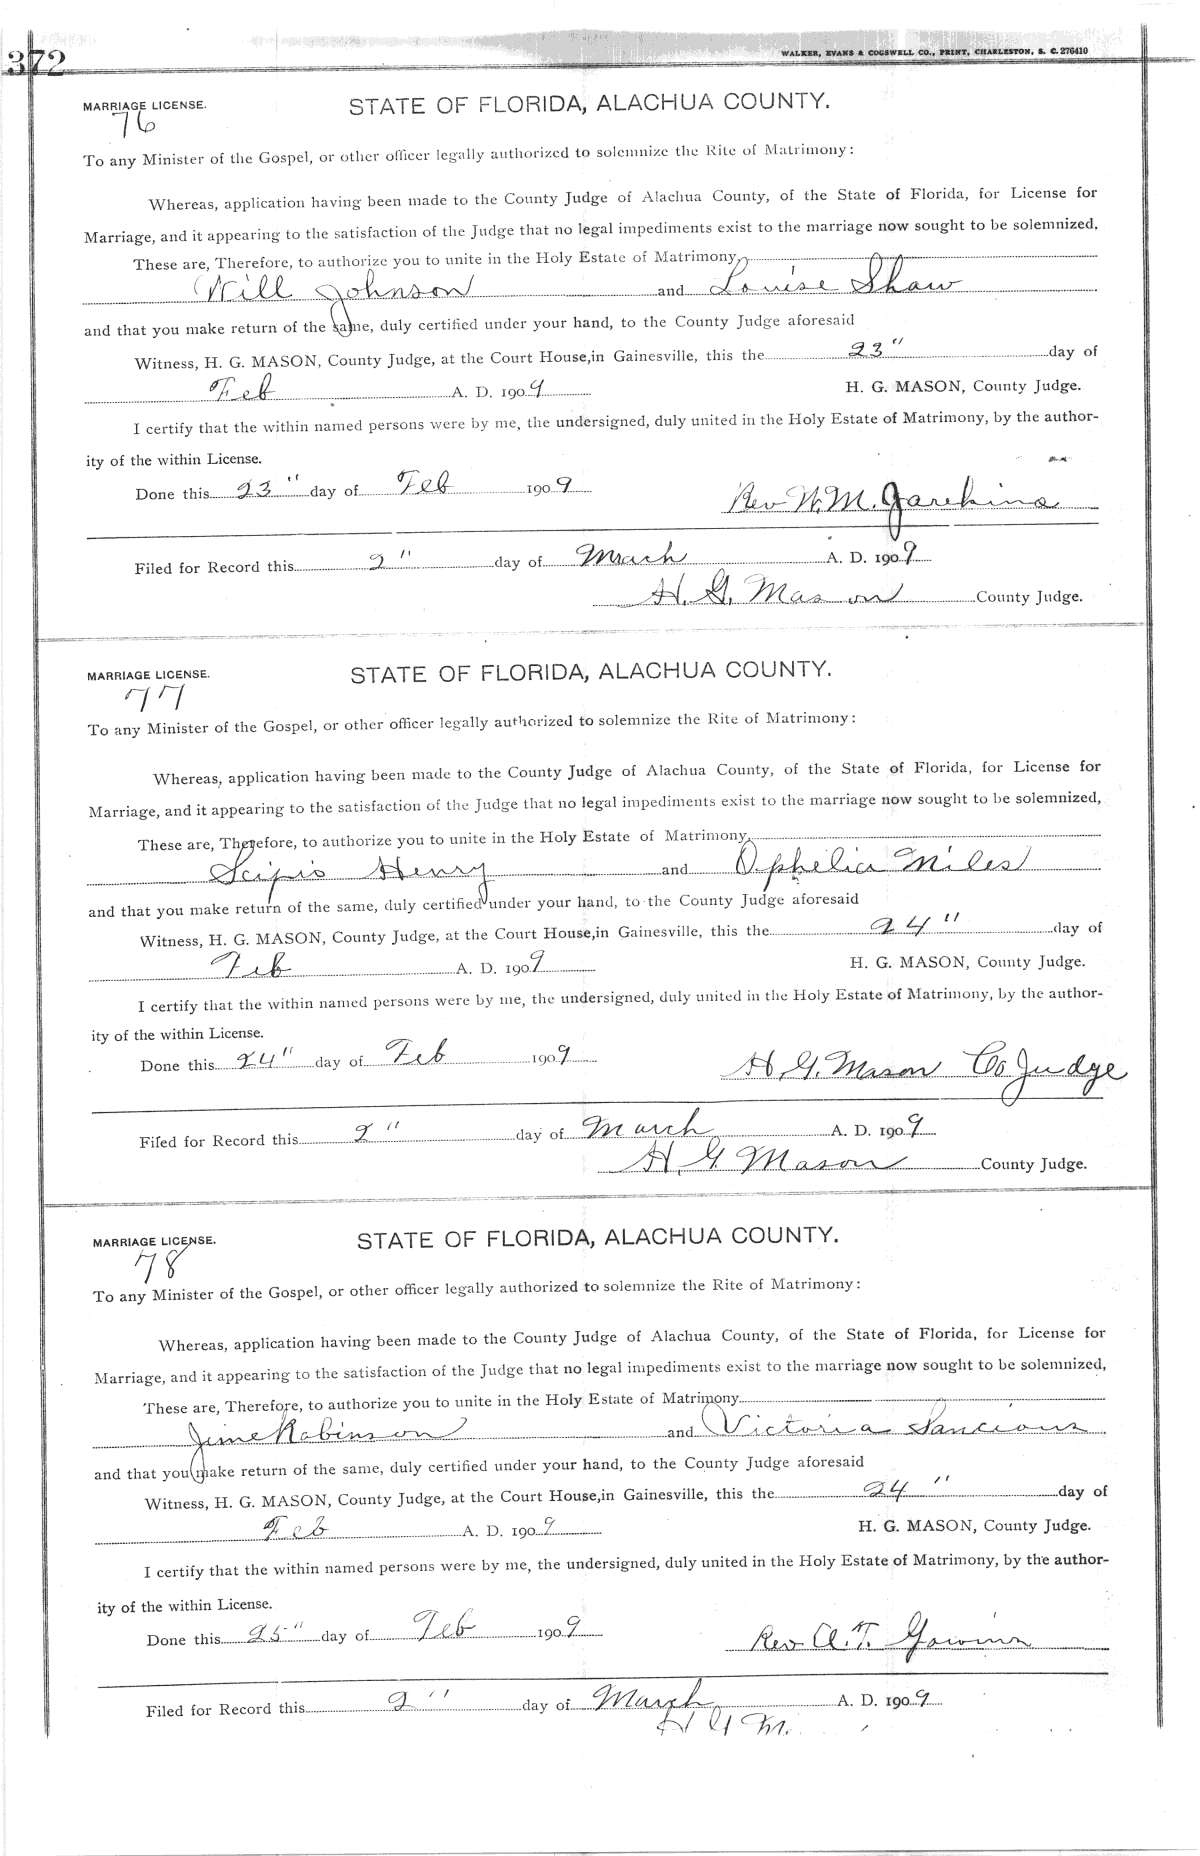 372
WALKER, EVANS & COGSWELL CO., PRINT, CHARLESTON, S. C. 276410
MARRIAGE LICENSE. STATE OF FLORIDA, ALACHUA COUNTY.
76
To any Minister of the Gospel, or other officer legally authorized to solemnize the Rite of Matrimony:
Whereas, application having been made to the County Judge of Alachua County, of the State of Florida, for License for
Marriage, and it appearing to the satisfaction of the Judge that no legal impediments exist to the marriage now sought to be solemnized,
These are, Therefore, to authorize you to unite in the Holy Estate of Matrimony,
Will Johnson and Louise Shaw
and that you make return of the same, duly certified under your hand, to the County Judge aforesaid
Witness, H. G. MASON, County Judge, at the Court House, in Gainesville, this the 23" day of
Feb A. D. 1909 H. G. MASON, County Judge.
I certify that the within named persons were by me, the undersigned, duly united in the Holy Estate of Matrimony, by the author-
ity of the within License.
Done this 23" day of Feb 1909
Rev W. M.
Filed for Record this 2" day of Mrach A. D. 1909
H. G. Mason County Judge.
MARRIAGE LICENSE. STATE OF FLORIDA, ALACHUA COUNTY.
77
To any Minister of the Gospel, or other officer legally authorized to solemnize the Rite of Matrimony:
Whereas, application having been made to the County Judge of Alachua County, of the State of Florida, for License for
Marriage, and it appearing to the satisfaction of the Judge that no legal impediments exist to the marriage now sought to be solemnized,
These are, Therefore, to authorize you to unite in the Holy Estate of Matrimony,
Scipio Henry and Ophelia Niles
and that you make return of the same, duly certified under your hand, to the County Judge aforesaid
Witness, H. G. MASON, County Judge, at the Court House, in Gainesville, this the 24" day of
Feb A. D. 1909 H. G. MASON, County Judge.
I certify that the within named persons were by me, the undersigned, duly united in the Holy Estate of Matrimony, by the author-
ity of the within License.
Done this 24" day of Feb 1909 H. G. Mason Co Judge
Filed for Record this 2" day of March A. D. 1909
H G Mason County Judge.
MARRIAGE LICENSE. STATE OF FLORIDA, ALACHUA COUNTY.
78
To any Minister of the Gospel, or other officer legally authorized to solemnize the Rite of Matrimony:
Whereas, application having been made to the County Judge of Alachua County, of the State of Florida, for License for
Marriage, and it appearing to the satisfaction of the Judge that no legal impediments exist to the marriage now sought to be solemnized,
These are, Therefore, to authorize you to unite in the Holy Estate of Matrimony
Jim Robinson and Victoria Sancious
and that you make return of the same, duly certified under your hand, to the County Judge aforesaid
Witness, H. G. MASON, County Judge, at the Court House, in Gainesville, this the 24" day of
Feb A. D. 1909 H. G. MASON, County Judge.
I certify that the within named persons were by me, the undersigned, duly united in the Holy Estate of Matrimony, by the author-
ity of the within License.
Done this 25" day of Feb 1909 Rev A. T.
Filed for Record this 2" day of March A. D. 1909
H G M.